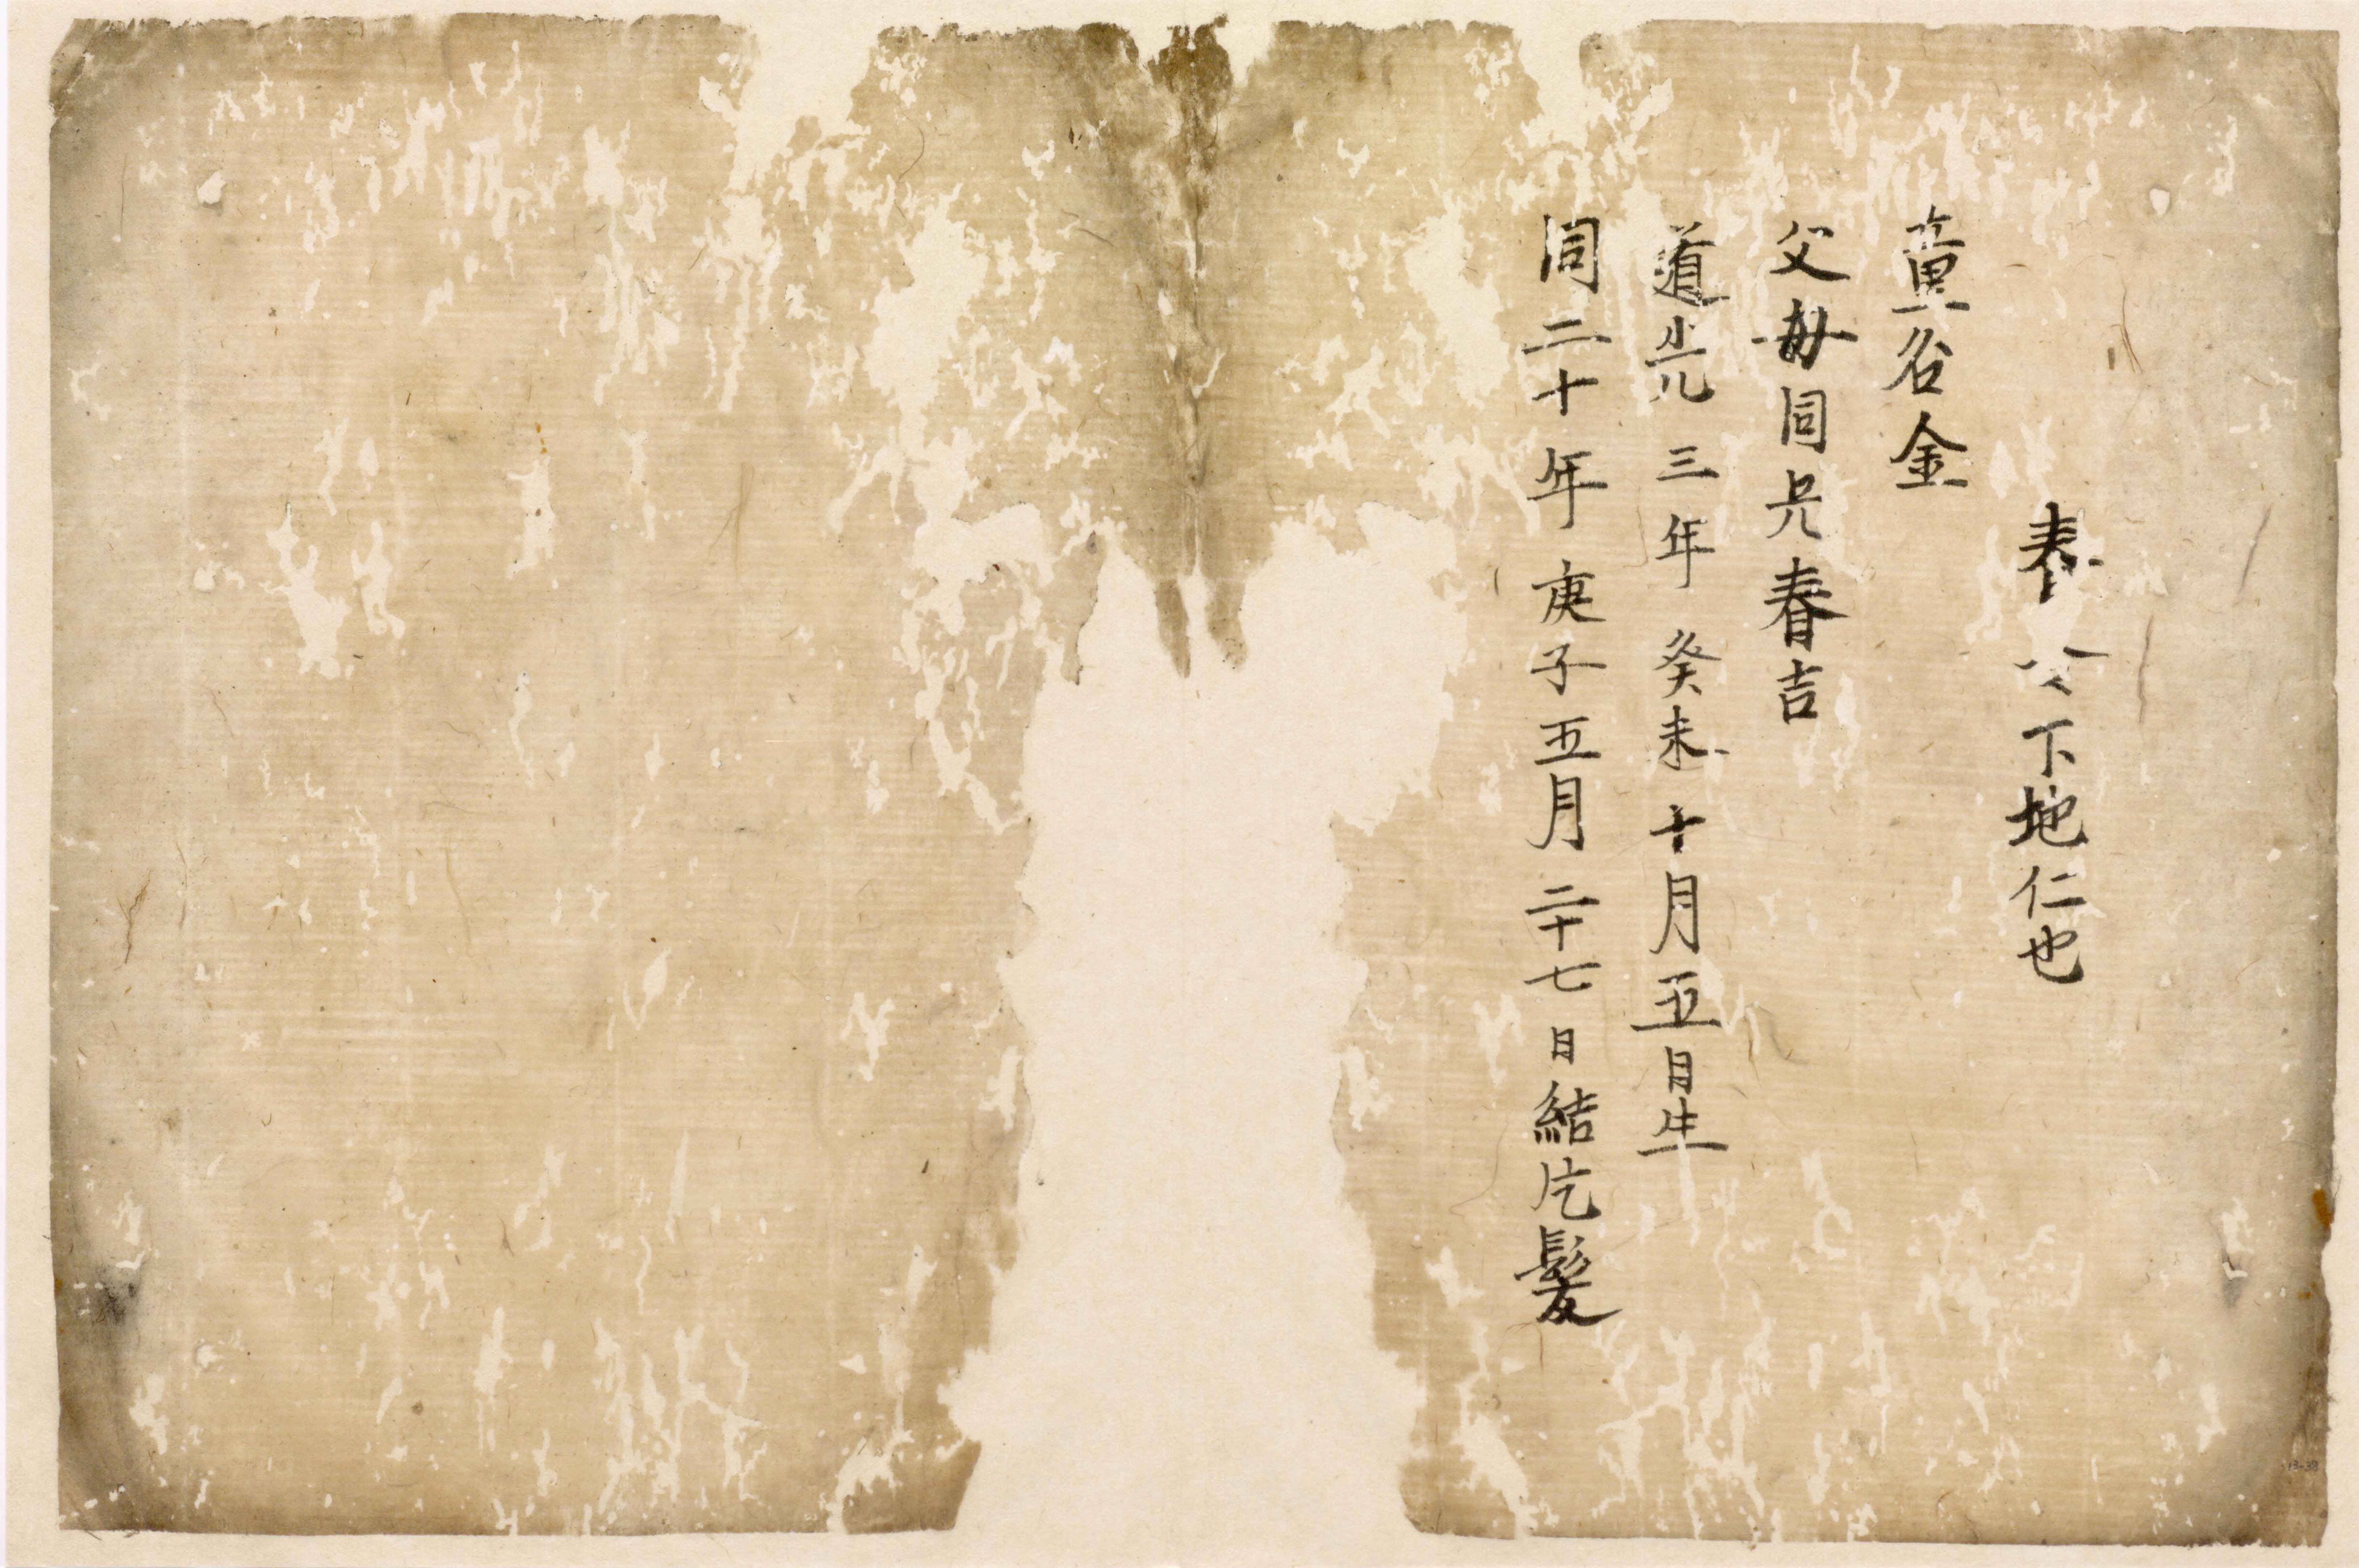 泰 下地仁也
童名金
父母同兄春吉
道光三年癸未十月五日生
同二十年庚子五月二十七日結片髪